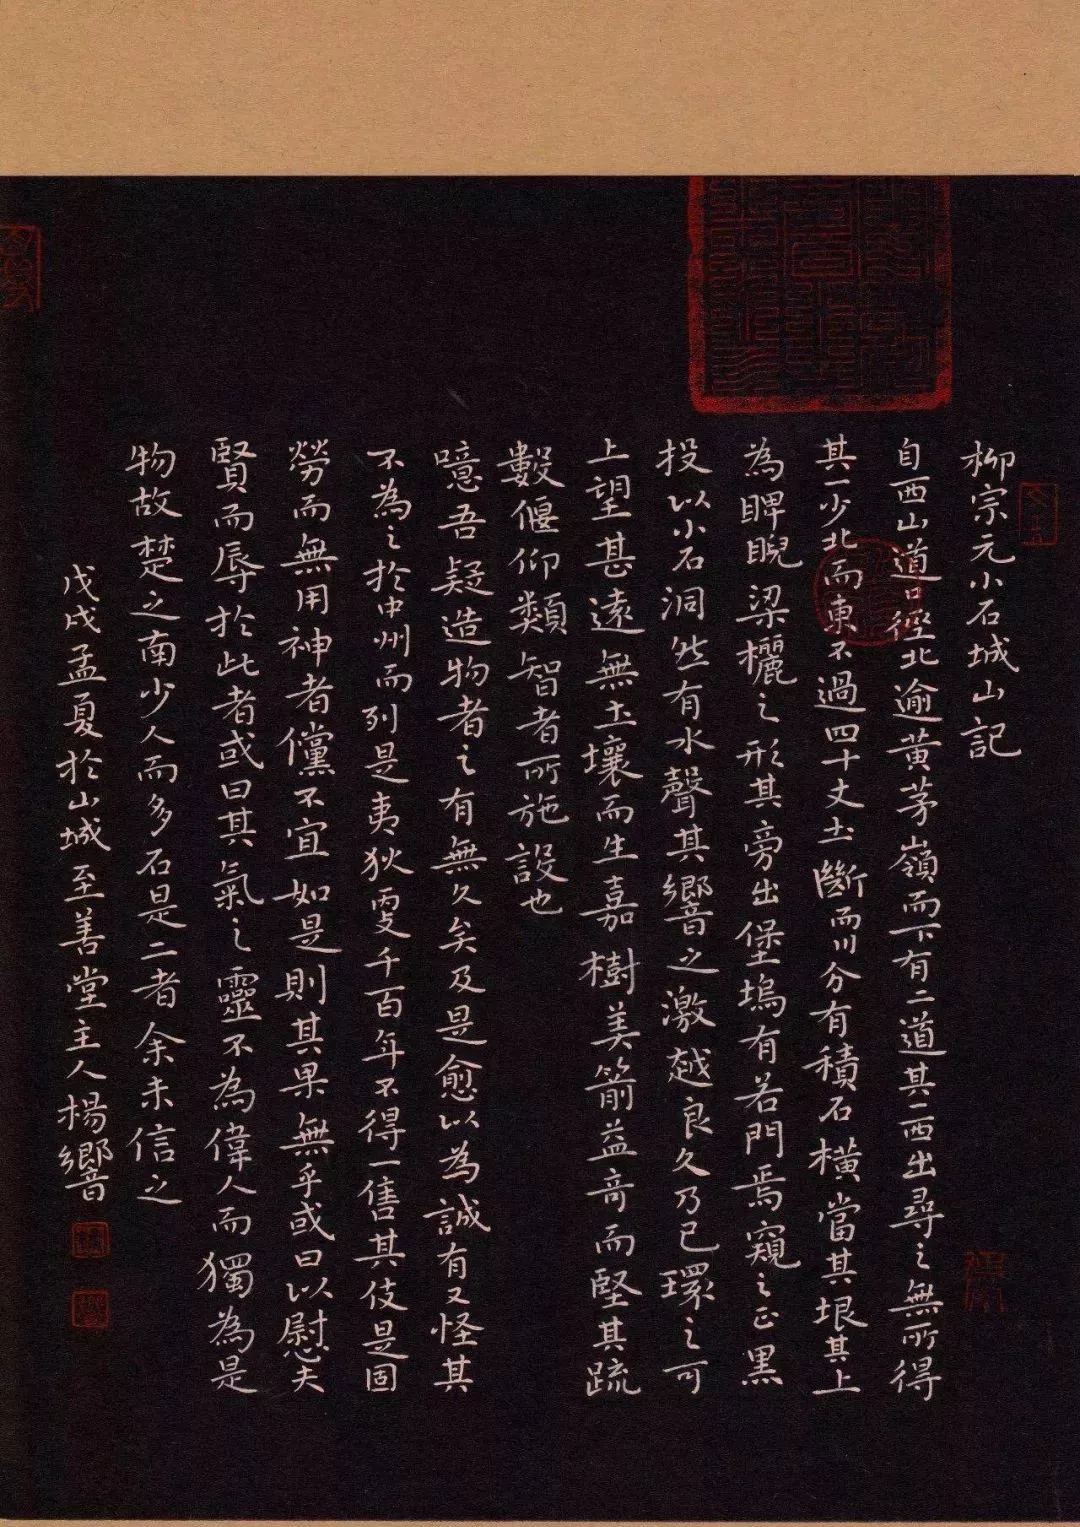 柳宗元小石城山記
自西山道口徑北逾黃茅嶺而下有二道其一西出尋之無所得
其一少北而東不過四十丈土斷而川分有積石橫當其垠其上
為睥睨梁欐之形其旁出堡塢有若門焉窺之正黑
投以小石洞然有水聲其響之激越良久乃已環之可
上望甚遠無土壤而生嘉樹美箭益奇而堅其疏
數偃仰類智者所施設也
噫吾疑造物者之有無久矣及是愈以為誠有又怪其
不為之於中州而列是夷狄更千百年不得一售其伎是固
勞而無用神者儻不宜如是則其果無乎或曰以慰夫
賢而辱於此者或曰其氣之靈不為偉人而獨為是
物故楚之南少人而多石是二者余未信之
戊戌孟夏於山城至善堂主人楊響